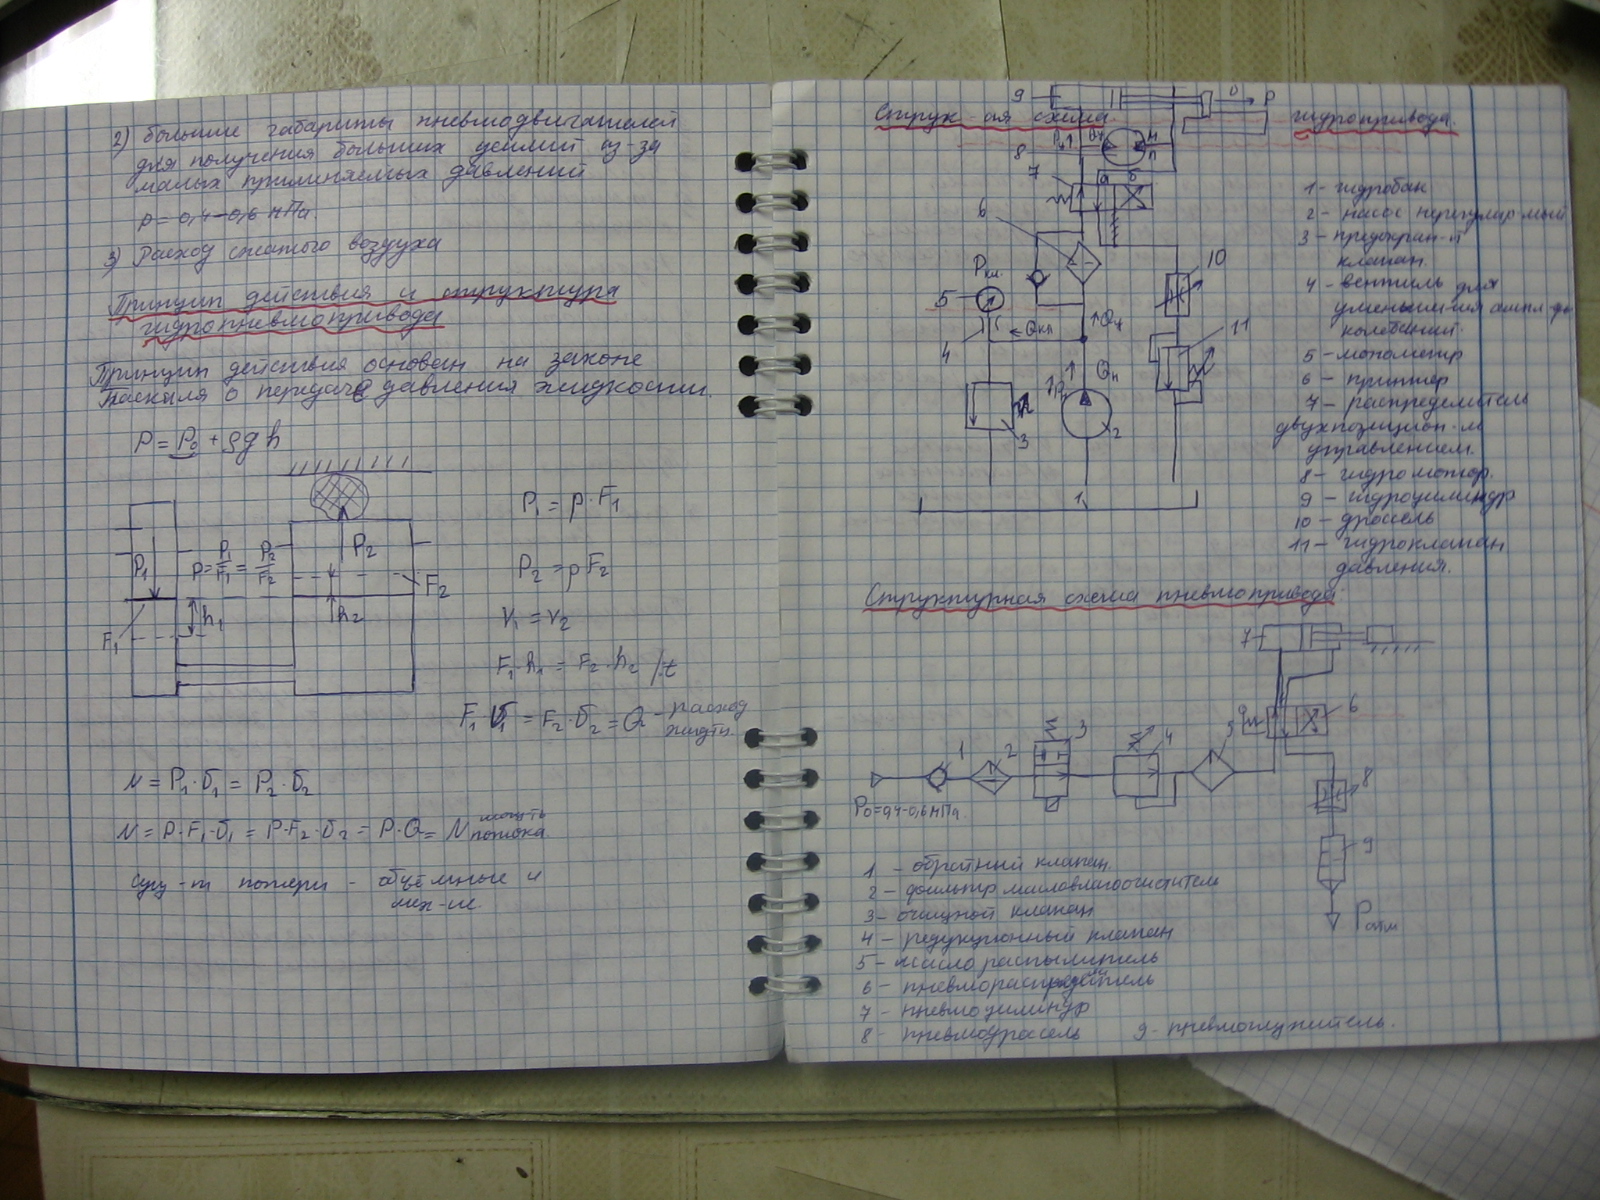 2) большие габариты пневмодвигателей
для получения больших усилий из-за
малых применяемых давлений
p = 0,4-0,6 мПа.
3) Расход сжатого воздуха
Принцип действия и структура
гидропневмопривода
Принцип действия основан на законе
Паскаля о передаче давления жидкости.
P = P₀ + ρgh
P₁ = p·F₁
P₁
p = P₁/F₁ = P₂/F₂
P₂
F₂
P₂ = pF₂
F₁
h₁
h₂
V₁ = V₂
F₁·h₁ = F₂·h₂ /:t
F₁·υ₁ = F₂·υ₂ = Q - расход
жидти
N = P₁·υ₁ = P₂·υ₂
N = P·F₁·υ₁ = P·F₂·υ₂ = P·Q = N мощть
потока
Сущ-т потери - объёмные и
мех-ие.
Структ-ая схема гидропривода.
9
υ
P
8
7
а б
6
Pкл.
5
10
Qкл
11
4
Qн
3
2
1
1 - гидробак
2 - насос нерегулир-мый
3 - предохран-й
клапан.
4 - вентиль для
уменьшения ампл-ды
колебаний.
5 - монометр
6 -
7 - распределитель
двухпозицион-м
управлением.
8 - гидромотор.
9 - гидроцилиндр
10 - дроссель
11 - гидроклапан
давления.
Структурная схема пневмопривода
7
6
1
2
3
4
5
8
P₀=0,4-0,6 мПа.
9
Pатм
1 - обратный клапан.
2 - фильтр масловлагоочиститель
3 - клапан
4 - редукционный клапан
5 - масло распылитель
6 - пневмораспределитель
7 - пневмоцилиндр
8 - пневмодроссель 9 - пневмоглушитель.